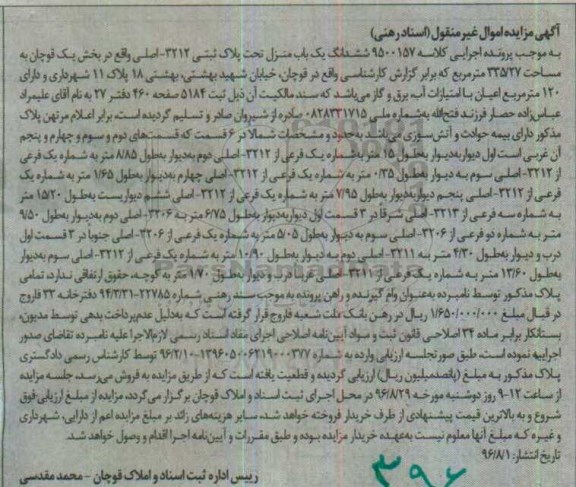 آگهی مزایده اموال غیر منقول (اسناد رهنی)
به موجب پرونده اجرایی کلاسه ۹۵۰۰۱۵۷ ششدانگ یک باب منزل تحت پلاک ثبتی ۳۲۱۲- اصلی واقع در بخش یک قوچان به
مساحت ۳۳۵/۲۷ مترمربع که برابر گزارش کارشناسی واقع در قوچان، خیابان شهید بهشتی، بهشتی ۱۸ پلاک ۱۱ شهرداری و دارای
۱۲۰ مترمربع اعیان با امتیازات آب، برق و گاز می‌باشد که سند مالکیت آن ذیل ثبت ۵۱۸۴ صفحه ۴۶۰ دفتر ۲۷ به نام آقای علیمراد
عباس‌زاده حصار فرزند فتح‌الله به‌شماره ملی ۰۸۲۸۳۳۱۷۱۵ صادره از شیروان صادر و تسلیم گردیده است، برابر اعلام مرتهن پلاک
مذکور دارای بیمه حوادث و آتش‌سوزی می‌باشد به‌حدود و مشخصات شمالا در ۶ قسمت که قسمت‌های دوم و سوم و چهارم و پنجم
آن غربی است اول دیوار به‌دیوار به‌طول ۱۵ متر به‌شماره یک فرعی از ۳۲۱۲- اصلی دوم به‌دیوار به‌طول ۸/۸۵ متر به شماره یک فرعی
از ۳۲۱۲- اصلی سوم به دیوار به‌طول ۰/۳۵ متر به شماره یک فرعی از ۳۲۱۲- اصلی چهارم به‌دیوار به‌طول ۱/۶۵ متر به شماره یک
فرعی از ۳۲۱۲- اصلی پنجم دیوار به‌دیوار به‌طول ۷/۹۵ متر به شماره یک فرعی از ۳۲۱۲- اصلی ششم دیواریست به‌طول ۱۵/۲۰ متر
به شماره سه فرعی از ۳۲۱۳- اصلی شرقا در ۳ قسمت اول دیوار به‌دیوار به‌طول ۶/۷۵ متر به ۳۲۰۶- اصلی دوم به‌دیوار به‌طول ۹/۵۰
متر به شماره دو فرعی از ۳۲۰۶- اصلی سوم به دیوار به‌طول ۵/۰۵ متر به شماره یک فرعی از ۳۲۰۶- اصلی جنوبا در ۳ قسمت اول
درب و دیوار به‌طول ۴/۳۰ متر به ۳۲۱۱- اصلی دوم به دیوار به‌طول ۱۰/۹۰ متر به شماره یک فرعی از ۳۲۱۲- اصلی سوم به‌دیوار
به‌طول ۱۳/۶۰ متر به شماره یک فرعی از ۳۲۱۱- اصلی غربا درب و دیوار به‌طول ۱/۷۰ متر به کوچه، حقوق ارتفاقی ندارد، تمامی
پلاک مذکور توسط نامبرده به‌عنوان وام گیرنده و راهن پرونده به موجب سند رهنی شماره ۲۲۷۸۵-۹۴/۳/۳۱ دفترخانه ۳۳ فاروج
در قبال مبلغ ۱/۶۵۰/۰۰۰/۰۰۰ ریال در رهن بانک ملت شعبه فاروج قرار گرفته است که به‌دلیل عدم‌پرداخت بدهی توسط مدیون،
بستانکار برابر ماده ۳۴ اصلاحی قانون ثبت و مواد آیین‌نامه اصلاحی اجرای مفاد اسناد رسمی لازم‌الاجرا علیه نامبرده تقاضای صدور
اجراییه نموده است، طبق صورتجلسه ارزیابی وارده به شماره ۱۳۹۶۰۵۰۰۶۲۱۹۰۰۰۳۷۷-۹۶/۲/۱۰ توسط کارشناس رسمی دادگستری
پلاک مذکور به مبلغ (پانصدمیلیون ریال) ارزیابی گردیده و قطعیت یافته است که از طریق مزایده به فروش می‌رسد، جلسه مزایده
از ساعت ۱۲-۹ روز دوشنبه مورخه ۹۶/۸/۲۹ در محل اجرای ثبت اسناد و املاک قوچان برگزار می‌گردد، مزایده از مبلغ ارزیابی فوق
شروع و به بالاترین قیمت پیشنهادی از طرف خریدار فروخته خواهد شد، سایر هزینه‌های زائد بر مبلغ مزایده اعم از دارایی، شهرداری
و غیره که مبلغ آنها معلوم نیست به‌عهده خریدار مزایده بوده و طبق مقررات و آیین‌نامه اجرا اقدام و وصول خواهد شد.
تاریخ انتشار: ۹۶/۸/۱
رییس اداره ثبت اسناد و املاک قوچان - محمد مقدسی
۳۹۶